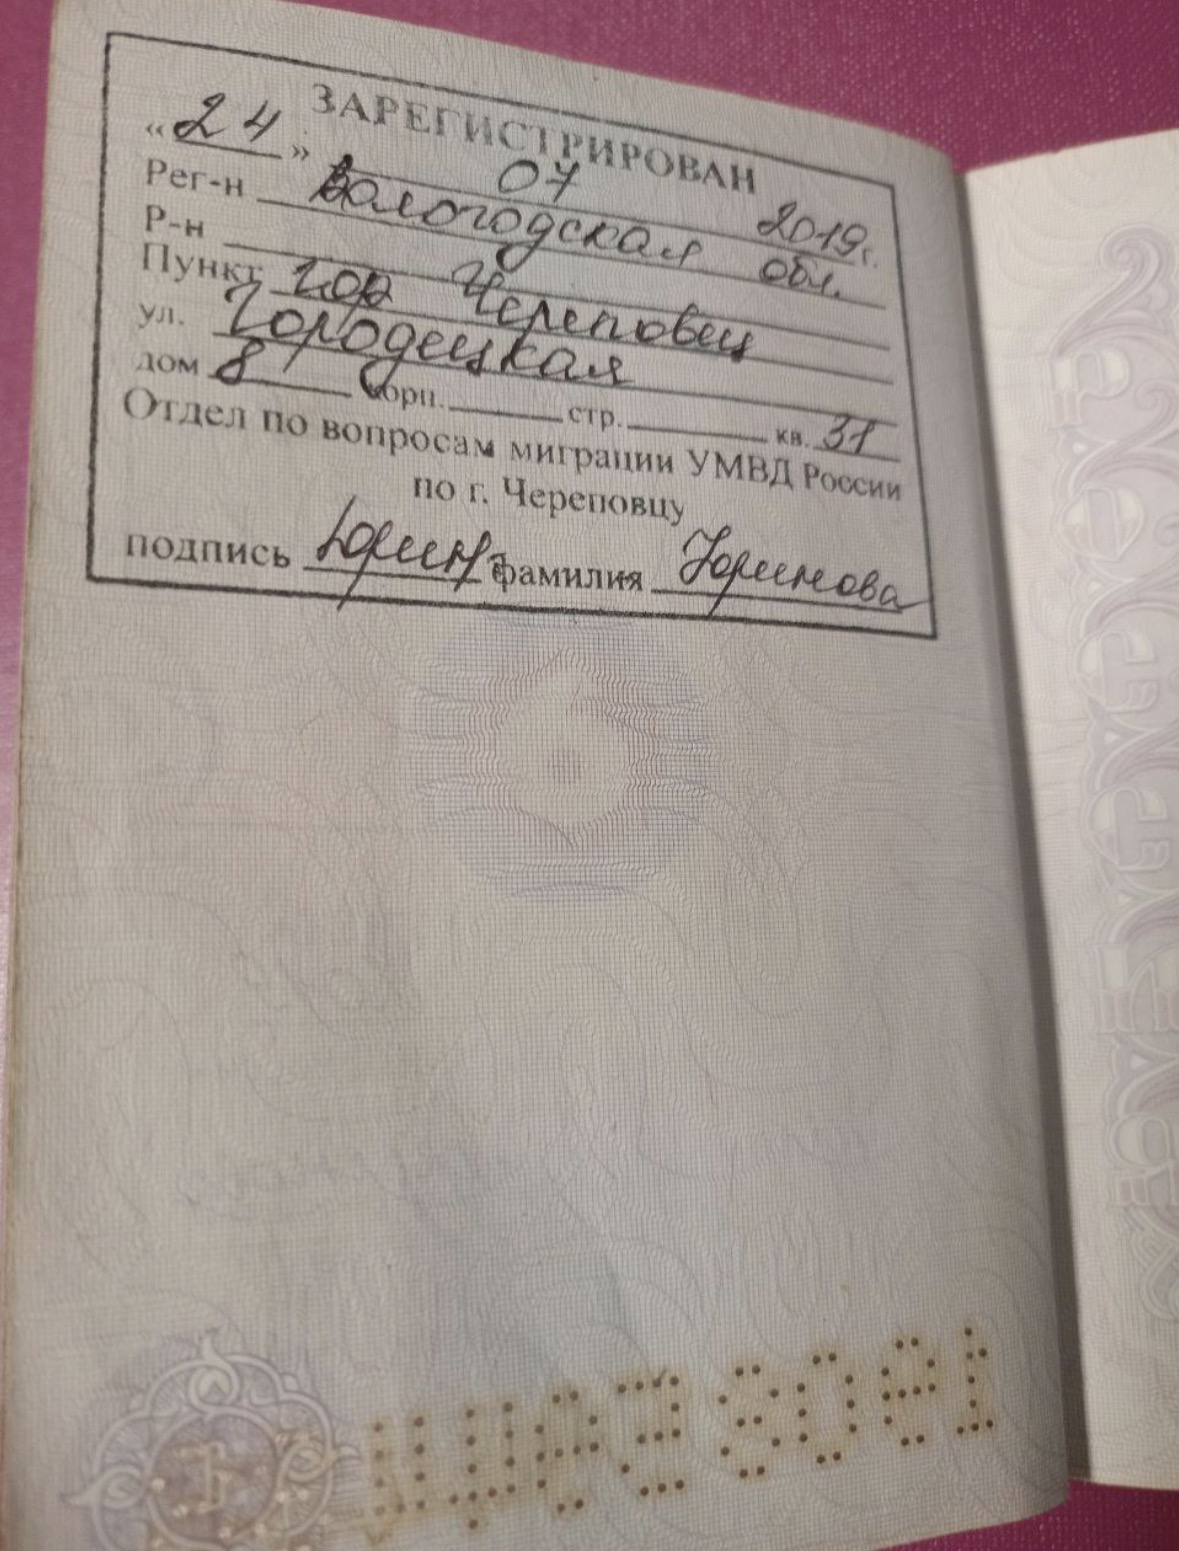 ЗАРЕГИСТРИРОВАН
«24» 07 2019г.
Рег-н Вологодская обл.
Р-н
Пункт гор Череповец
ул. Городецкая
дом 8 корп. стр. кв. 31
Отдел по вопросам миграции УМВД России
по г. Череповцу
подпись фамилия